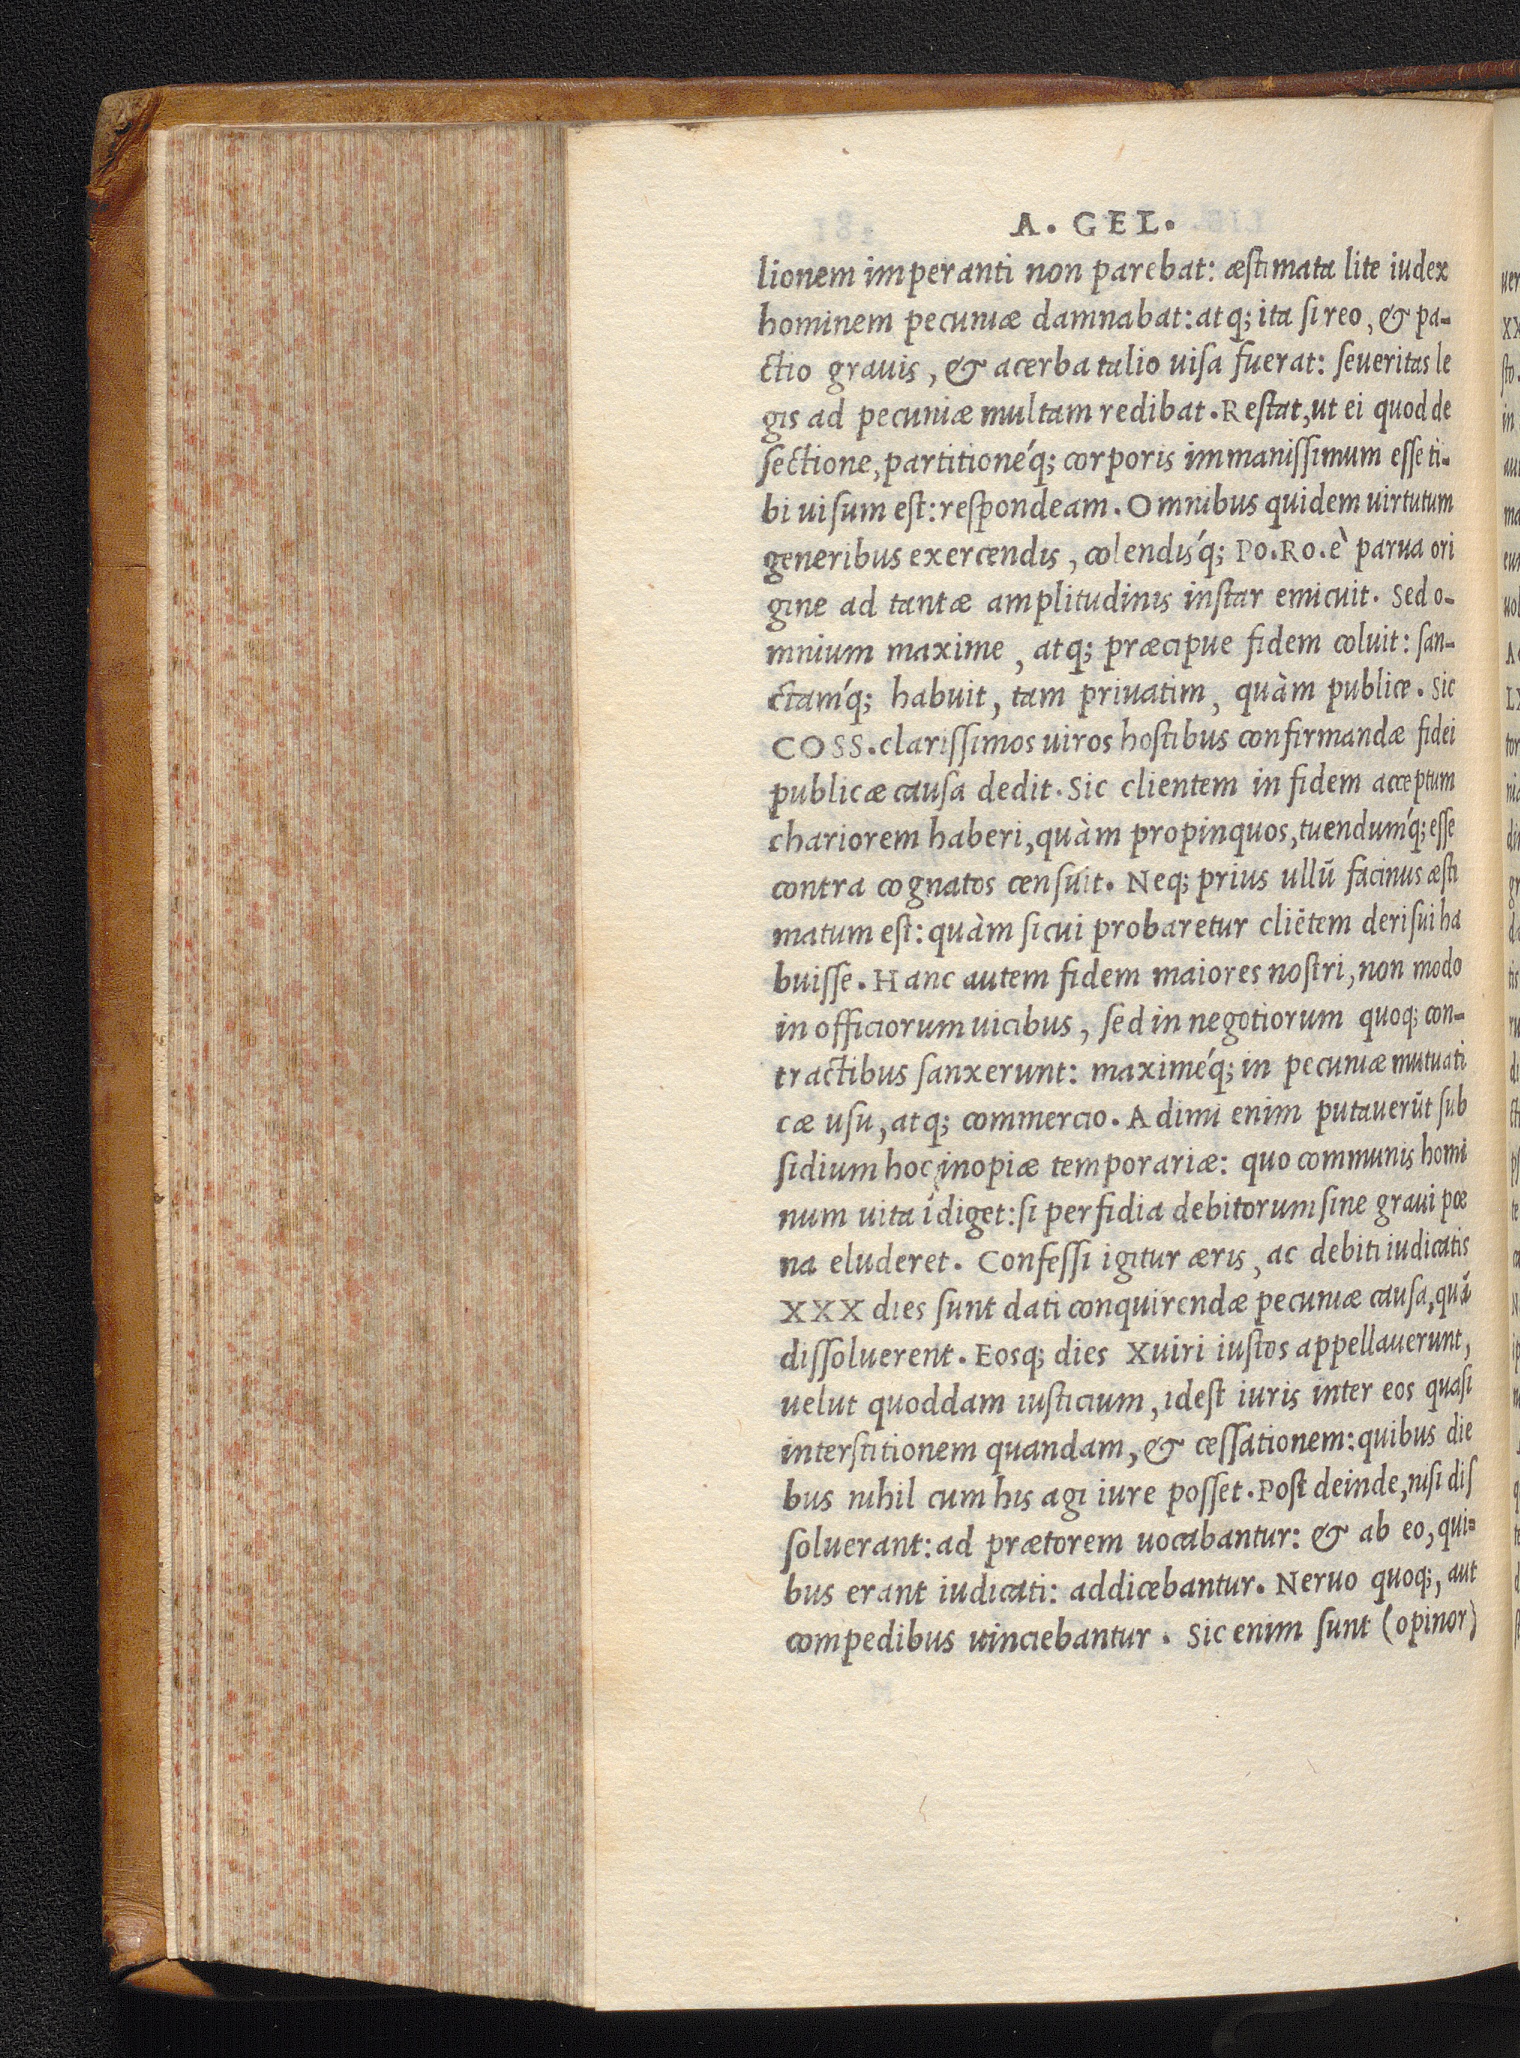 A. GEL.
lionem imperanti non parebat: æstimata lite iudex
hominem pecuniæ damnabat: atq; ita si reo, & pa-
ctio grauis, & acerba talio uisa fuerat: seueritas le
gis ad pecuniæ multam redibat. Restat, ut ei quod de
sectione, partitioné'q; corporis immanissimum esse ti-
bi uisum est: respondeam. Omnibus quidem uirtutum
generibus exercendis, colendis'q; Po. Ro. è parua ori
gine ad tantæ amplitudinis instar emicuit. Sed o-
mnium maxime, atq; præcipue fidem coluit: san-
ctam'q; habuit, tam priuatim, quàm publice. Sic
COSS. clarissimos uiros hostibus confirmandæ fidei
publicæ causa dedit. Sic clientem in fidem acceptum
chariorem haberi, quàm propinquos, tuendum'q; esse
contra cognatos censuit. Neq; prius ullū facinus æsti
matum est: quàm si cui probaretur cliētem derisui ha
buisse. Hanc autem fidem maiores nostri, non modo
in officiorum uicibus, sed in negotiorum quoq; con-
tractibus sanxerunt: maximé'q; in pecuniæ mutuati
cæ usu, atq; commercio. Adimi enim putauerūt sub
sidium hoc inopiæ temporariæ: quo communis homi
num uita īdiget: si perfidia debitorum sine graui pœ
na eluderet. Confessi igitur æris, ac debiti iudicatis
XXX dies sunt dati conquirendæ pecuniæ causa, quā
dissoluerent. Eosq; dies Xuiri iustos appellauerunt,
uelut quoddam iusticium, idest iuris inter eos quasi
interstitionem quandam, & cessationem: quibus die
bus nihil cum his agi iure posset. Post deinde, nisi dis
soluerant: ad prætorem uocabantur: & ab eo, qui=
bus erant iudicati: addicebantur. Neruo quoq;, aut
compedibus uinciebantur. Sic enim sunt (opinor)